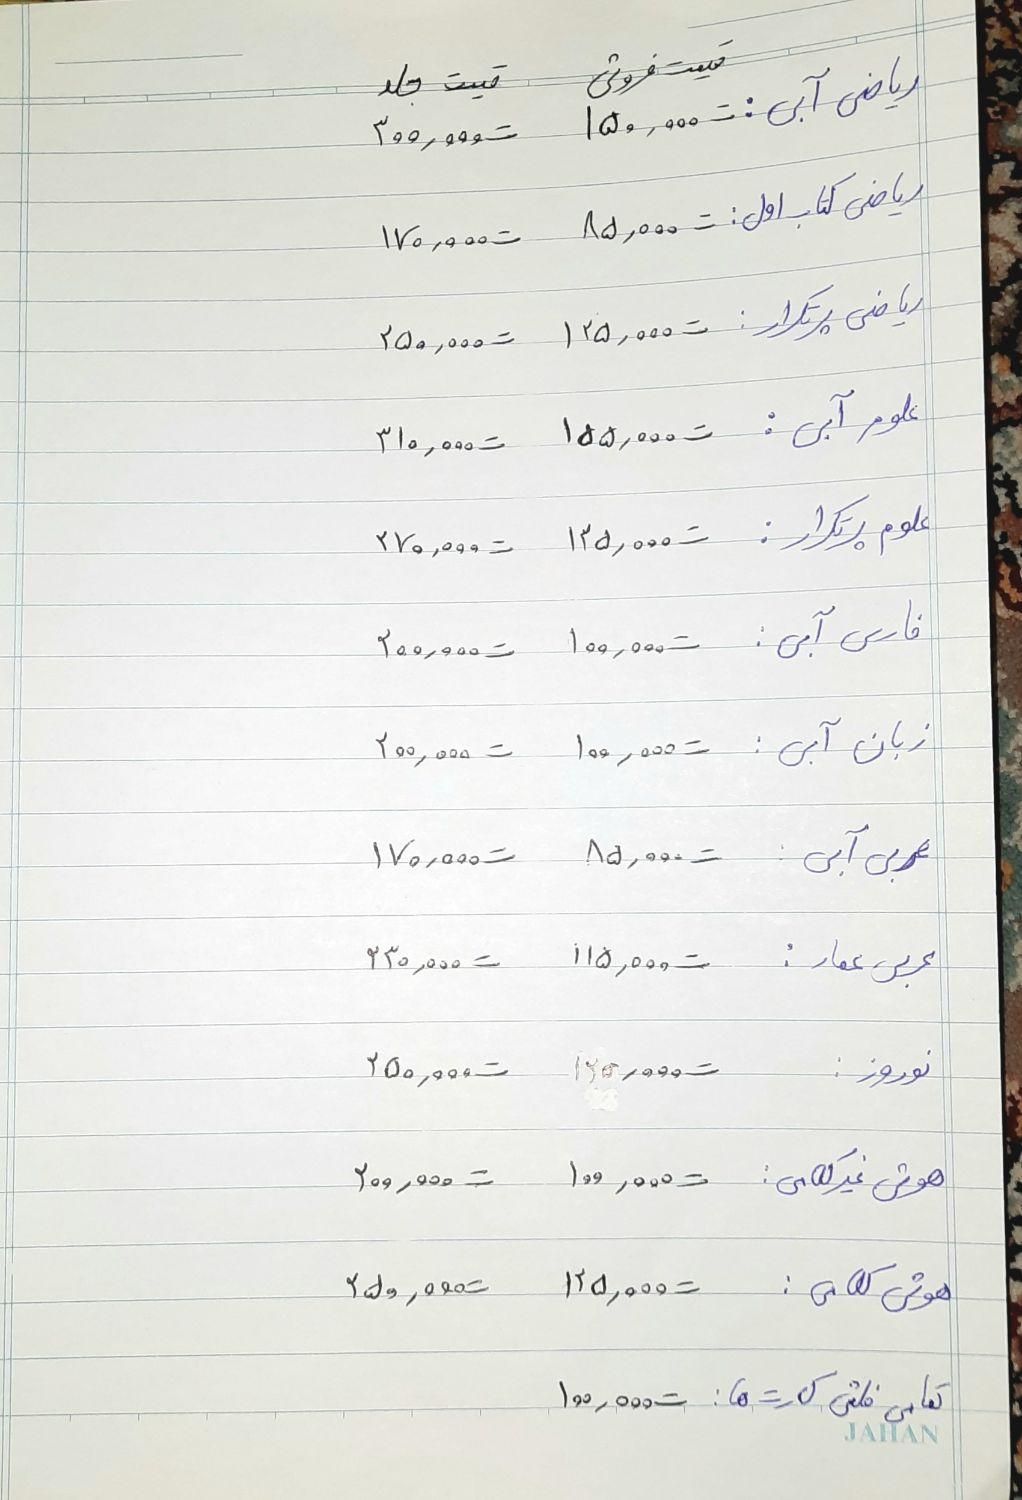 قیمت فروش قیمت جلد
ریاضی آبی: ۱۵۰,۰۰۰ ت ۳۰۰,۰۰۰ ت
ریاضی کتاب اول: ۸۵,۰۰۰ ت ۱۷۰,۰۰۰ ت
ریاضی پرتکرار: ۱۲۵,۰۰۰ ت ۲۵۰,۰۰۰ ت
علوم آبی: ۱۵۵,۰۰۰ ت ۳۱۰,۰۰۰ ت
علوم پرتکرار: ۱۳۵,۰۰۰ ت ۲۷۰,۰۰۰ ت
فارسی آبی: ۱۰۰,۰۰۰ ت ۲۰۰,۰۰۰ ت
زبان آبی: ۱۰۰,۰۰۰ ت ۲۰۰,۰۰۰ ت
عربی آبی: ۸۵,۰۰۰ ت ۱۷۰,۰۰۰ ت
عربی عمار: ۱۱۵,۰۰۰ ت ۲۳۰,۰۰۰ ت
نوروز: ۱۲۵,۰۰۰ ت ۲۵۰,۰۰۰ ت
هوش غیرکلامی: ۱۰۰,۰۰۰ ت ۲۰۰,۰۰۰ ت
هوش کلامی: ۱۲۵,۰۰۰ ت ۲۵۰,۰۰۰ ت
تمامی فلش کارت ها: ۱۰۰,۰۰۰ ت
JAHAN